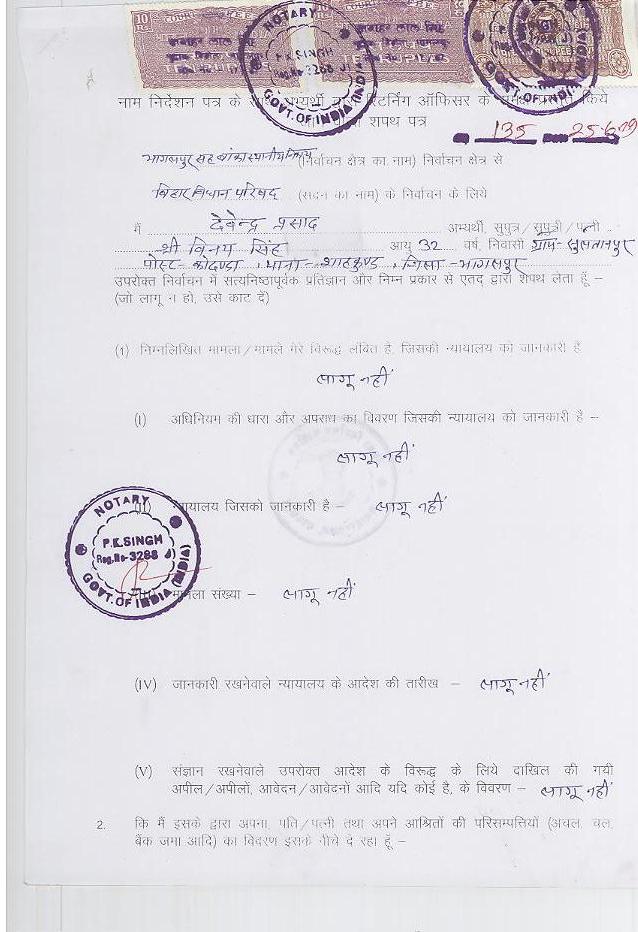 NOTARY
P.K.SINGH
Reg.No-3288
GOVT.OF INDIA (INDIA)
नाम निर्देशन पत्र के अभ्यर्थी रिटर्निंग ऑफिसर के किये
शपथ पत्र
135 25-6-09
भागलपुर सह बांका स्थानीय निकाय (निर्वाचन क्षेत्र का नाम) निर्वाचन क्षेत्र से
बिहार विधान परिषद (सदन का नाम) के निर्वाचन के लिये
मैं देवेन्द्र प्रसाद अभ्यर्थी, सुपुत्र/सुपुत्री/पत्नी
श्री विनय सिंह आयु 32 वर्ष, निवासी ग्राम-सुलतानपुर
पोस्ट-कोदण्डा, थाना-शाहकुण्ड, जिला-भागलपुर
उपरोक्त निर्वाचन में सत्यनिष्ठापूर्वक प्रतिज्ञान और निम्न प्रकार से एतद् द्वारा शपथ लेता हूँ –
(जो लागू न हो, उसे काट दें)
(1) निम्नलिखित मामला/मामले मेरे विरूद्ध लंबित है, जिसकी न्यायालय को जानकारी है
लागू नहीं
(I) अधिनियम की धारा और अपराध का विवरण जिसकी न्यायालय को जानकारी है –
लागू नहीं
न्यायालय जिसको जानकारी है – लागू नहीं
NOTARY
P.K.SINGH
Reg.No-3288
GOVT.OF INDIA (INDIA)
मामला संख्या – लागू नहीं
(IV) जानकारी रखनेवाले न्यायालय के आदेश की तारीख – लागू नहीं
(V) संज्ञान रखनेवाले उपरोक्त आदेश के विरूद्ध के लिये दाखिल की गयी
अपील/अपीलों, आवेदन/आवेदनों आदि यदि कोई है, के विवरण – लागू नहीं
2. कि मैं इसके द्वारा अपना, पति/पत्नी तथा अपने आश्रितों की परिसम्पत्तियों (अचल, चल,
बैंक जमा आदि) का विवरण इसके नीचे दे रहा हूँ –